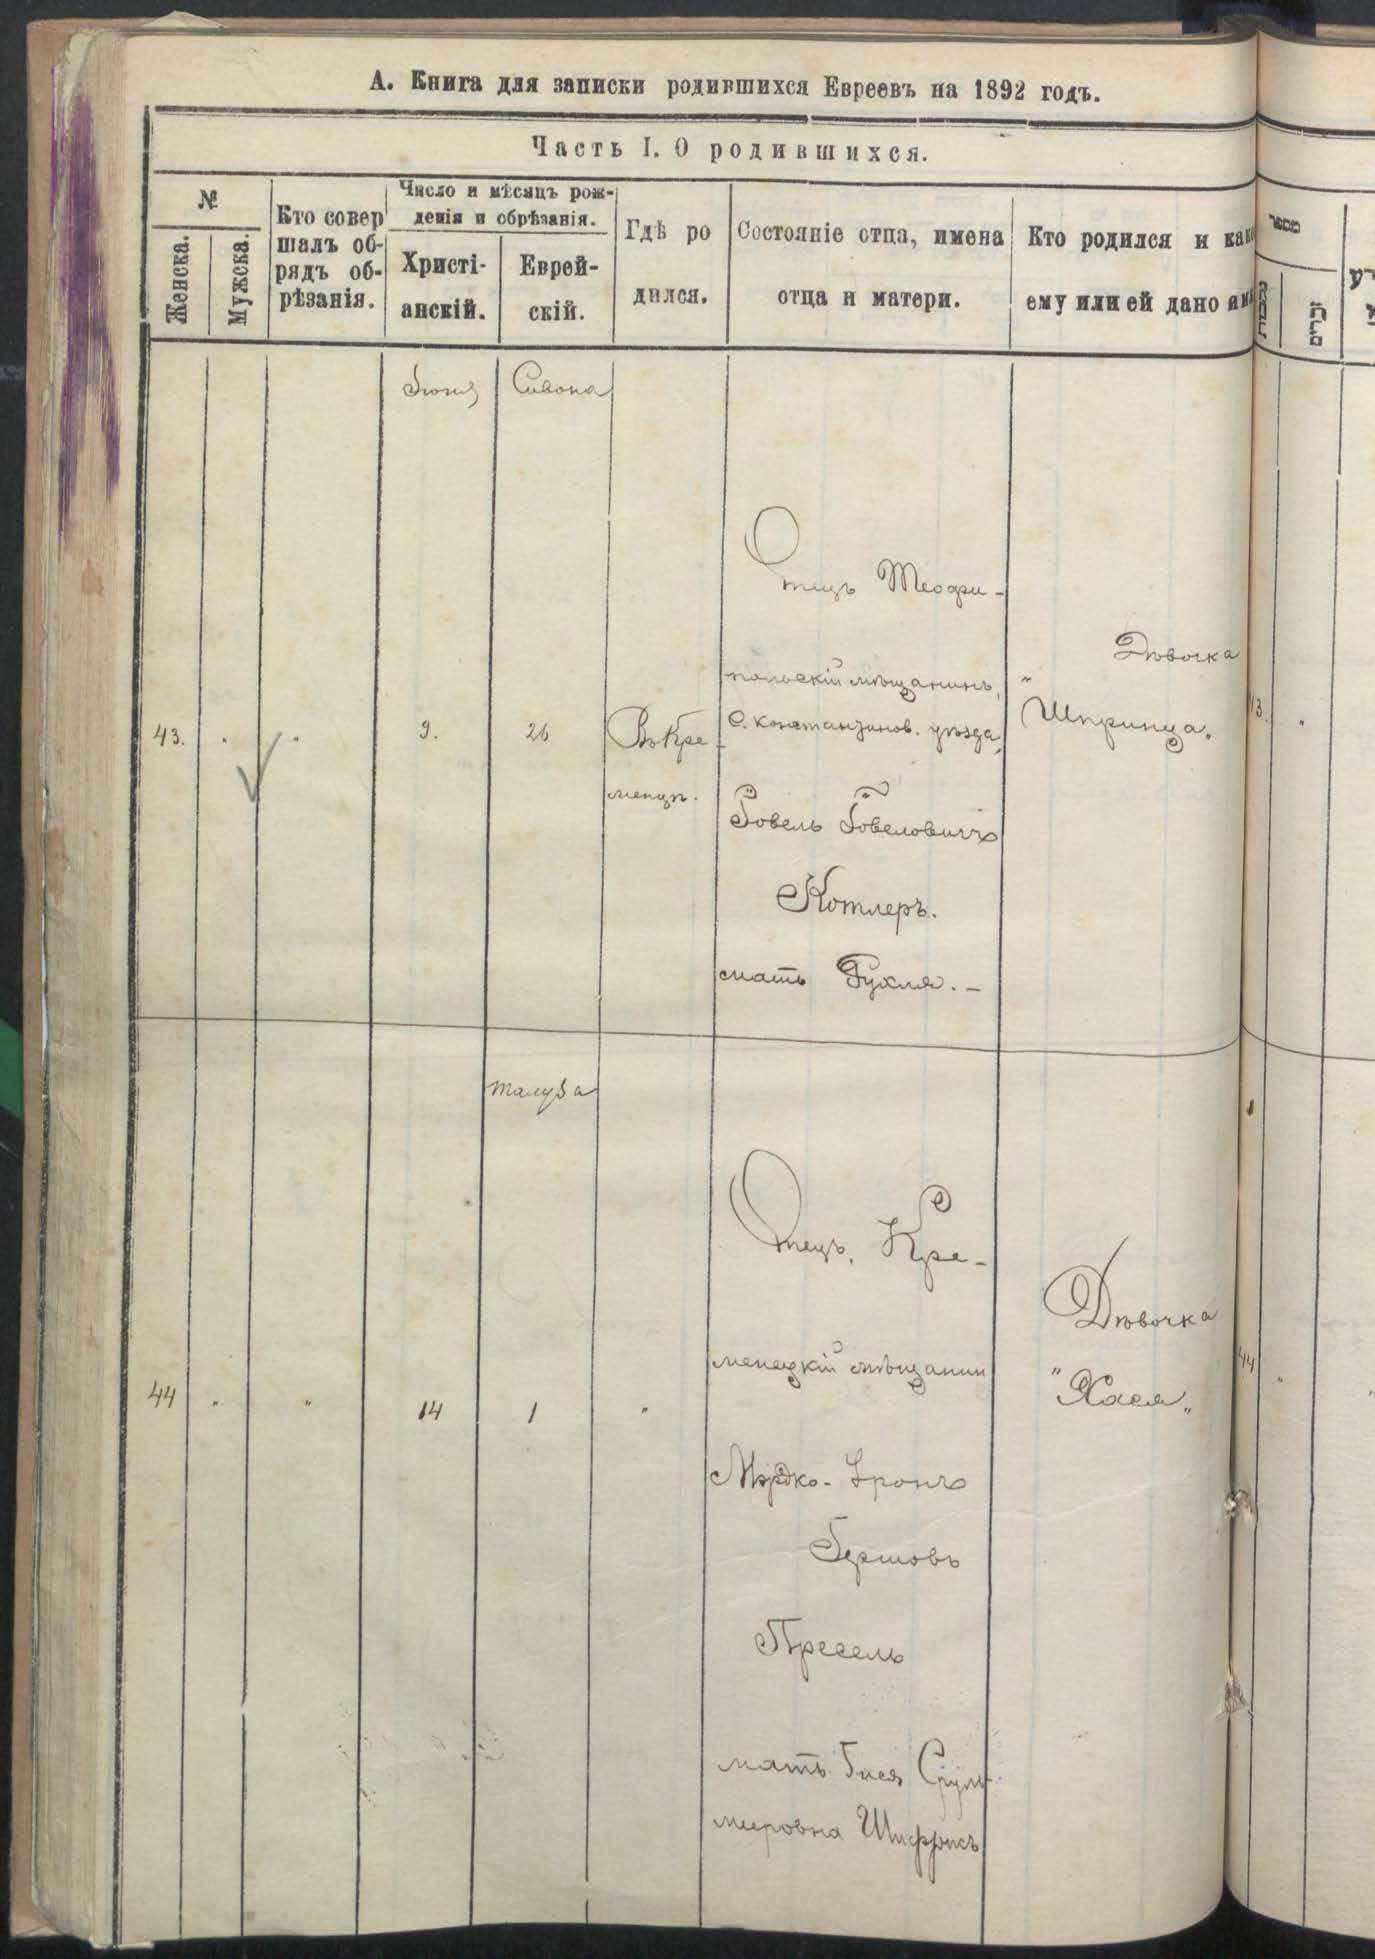 А. Книга для записки родившихся Евреевъ на 1892 годъ.
Часть I. О родившихся.
№
Женска.
Мужска.
Кто совер
шалъ об-
рядъ об-
рѣзанія.
Число и мѣсяцъ рож-
денія и обрѣзанія.
Христі-
анскій.
Еврей-
скій.
Гдѣ ро
дился.
Состояніе отца, имена
отца и матери.
Кто родился и како
ему или ей дано им
מספר
נקבות
זכרים
Іюня
Сивона
43.
"
"
9.
26
Въ Кре-
менцѣ.
Отецъ Теофи-
польскій мѣщанинъ,
С. Константинов. уѣзда,
Іовель Іовеловичъ
Котлеръ.
мать Рухля. -
Дѣвочка
"Шпринца"
43.
"
Талуза
44
"
"
14
1
"
Отецъ, Кре-
менецкій мѣщанин
Мордко-
Гершовъ
Пресель
мать Гися Сруль
мееровна
Дѣвочка
"Хася"
44
"